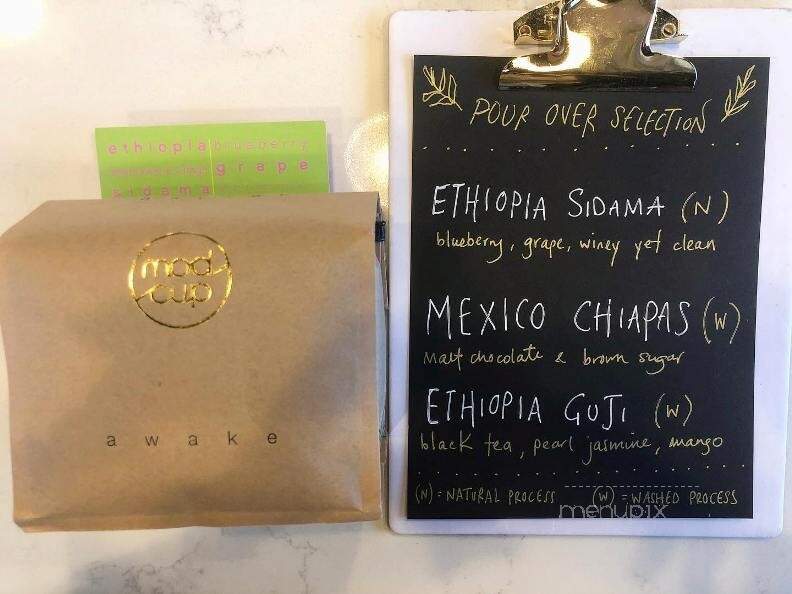 ethiopia blueberry
grape
sidama
mod
cup
awake
POUR OVER SELECTION
ETHIOPIA SIDAMA (N)
blueberry, grape, winey yet clean
MEXICO CHIAPAS (W)
malt chocolate & brown sugar
ETHIOPIA GUJI (W)
black tea, pearl jasmine, mango
(N) = NATURAL PROCESS (W) = WASHED PROCESS
menupix